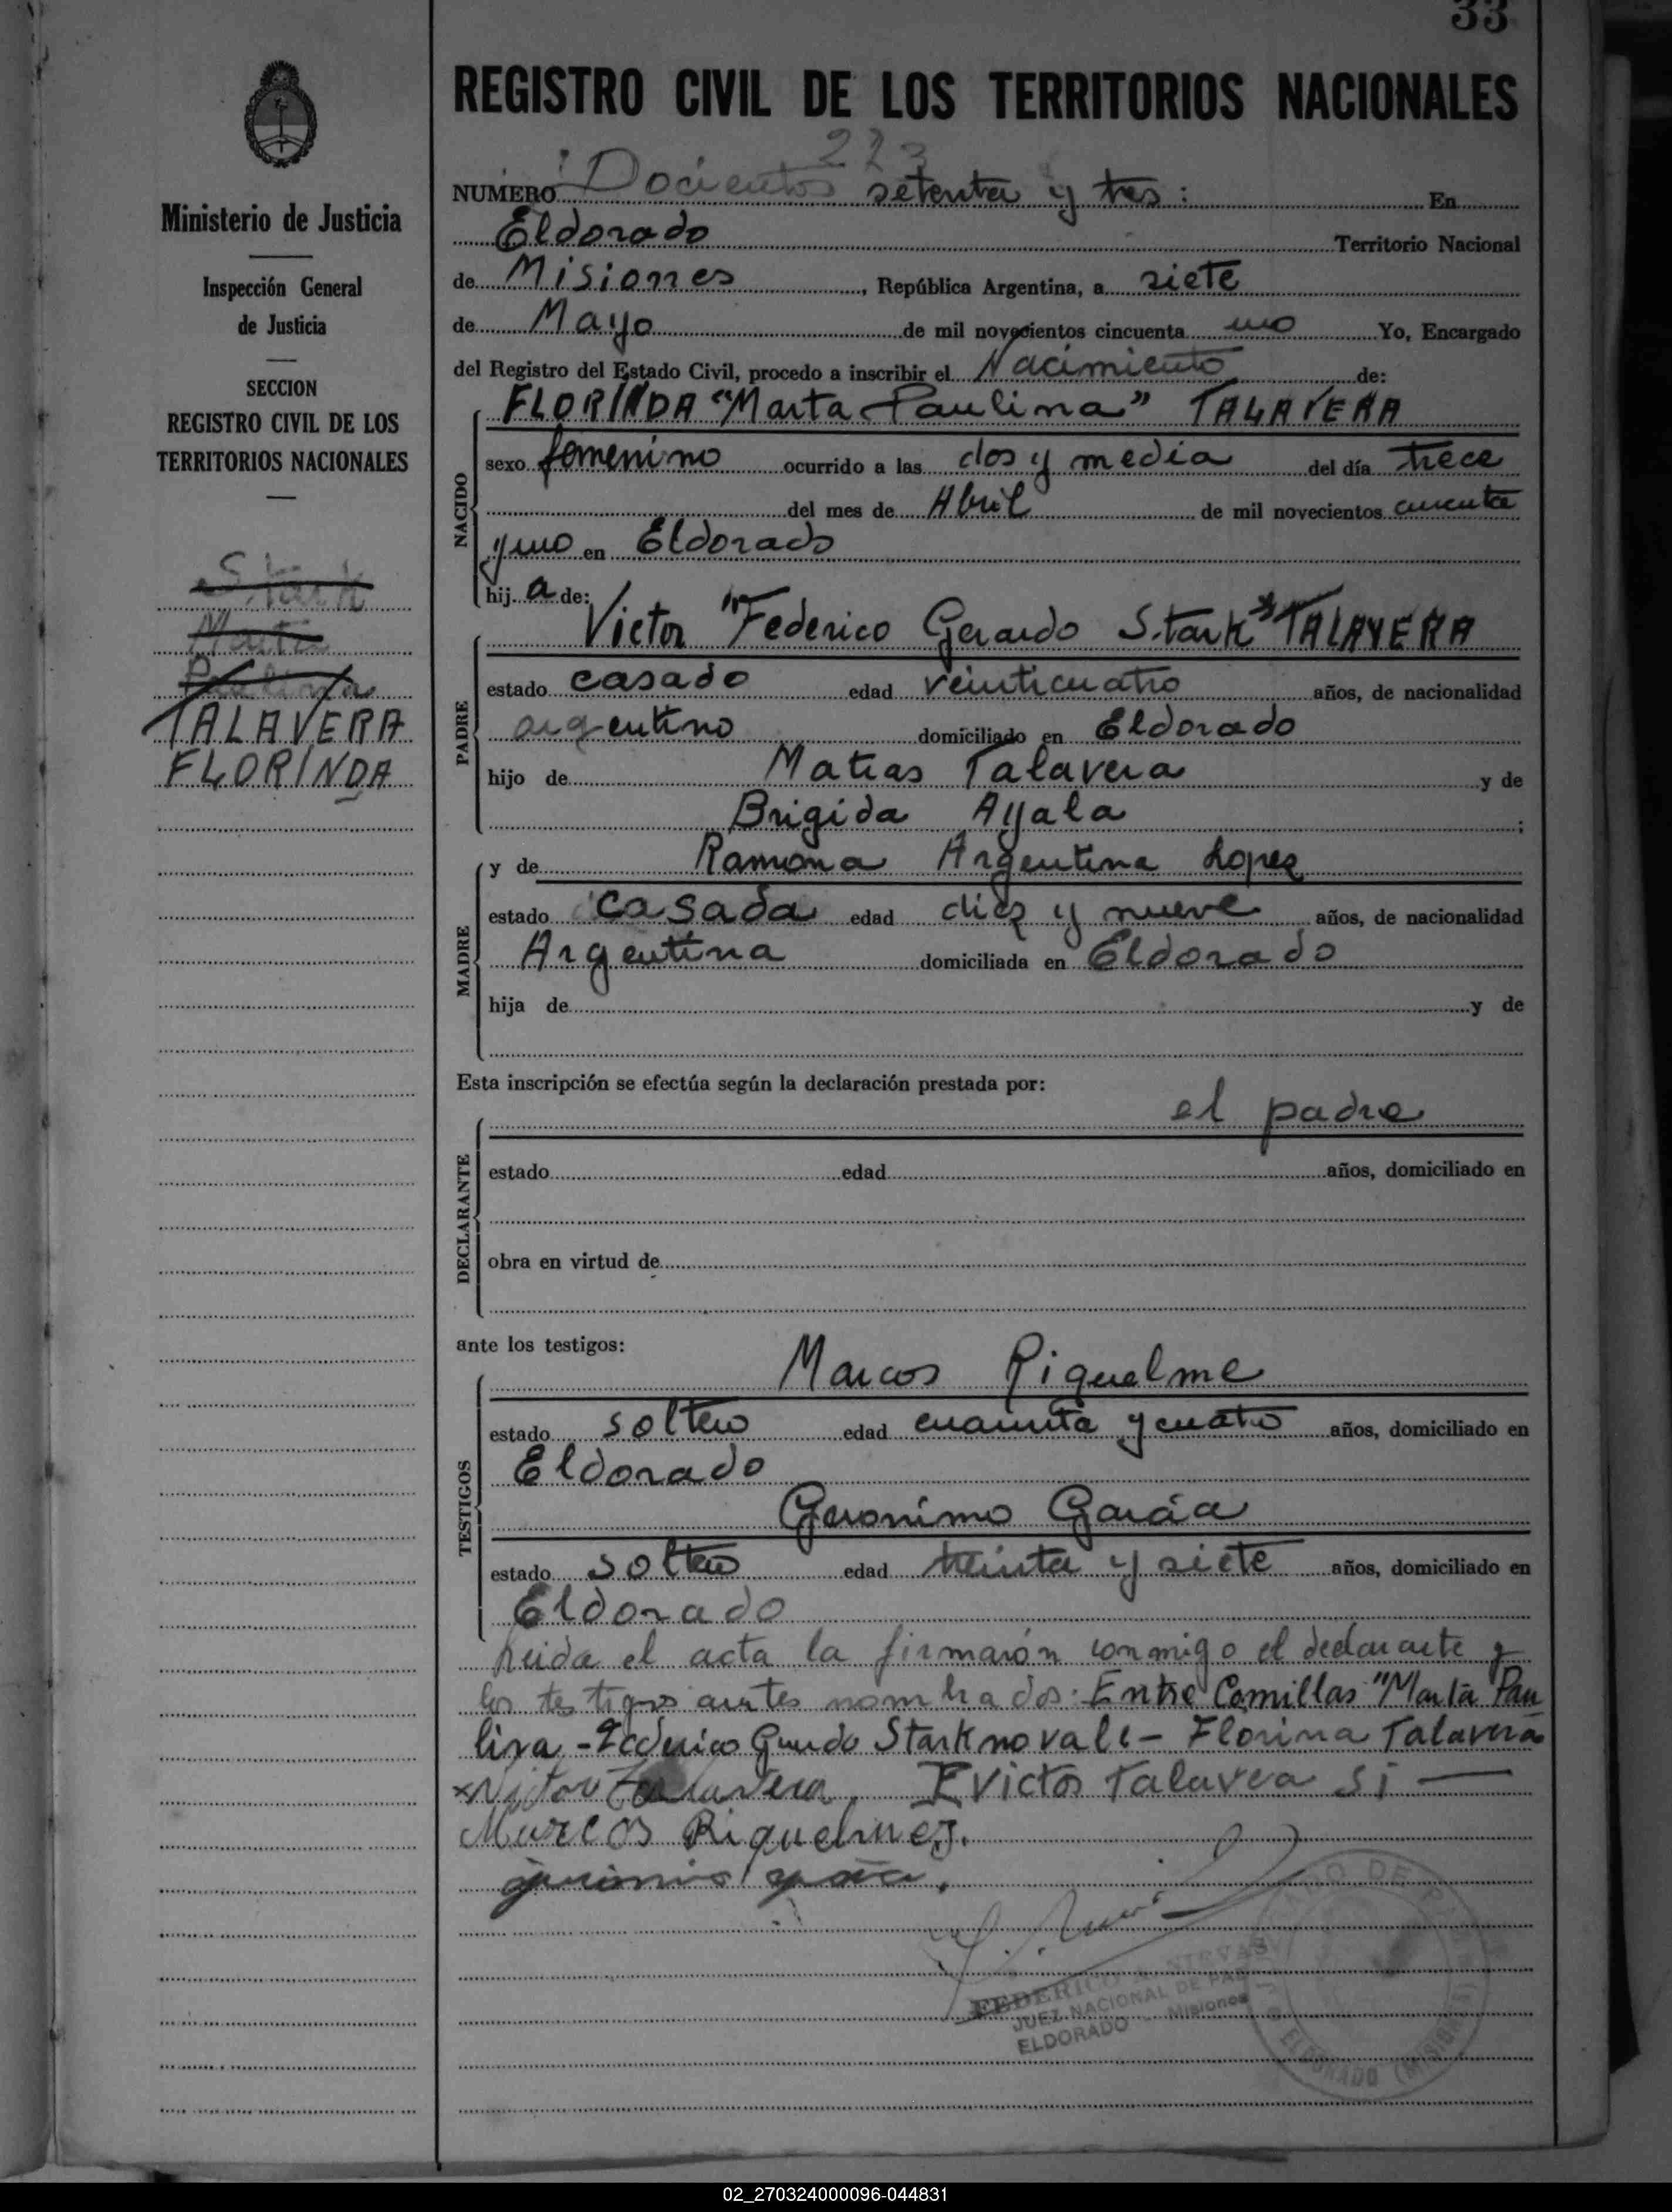 33
REGISTRO CIVIL DE LOS TERRITORIOS NACIONALES
Ministerio de Justicia
Inspección General
de Justicia
SECCION
REGISTRO CIVIL DE LOS
TERRITORIOS NACIONALES
Stark
Marta
Paulina
TALAVERA
FLORINDA
273
NUMERO Docientos setenta y tres : En
Eldorado Territorio Nacional
de Misiones, República Argentina, a siete
de Mayo de mil novecientos cincuenta uno Yo, Encargado
del Registro del Estado Civil, procedo a inscribir el Nacimiento de:
NACIDO
FLORINDA "Marta Paulina" TALAVERA
sexo femenino ocurrido a las dos y media del día trece
del mes de Abril de mil novecientos cincuenta
y uno en Eldorado
hij a de:
PADRE
Victor "Federico Gerardo Stark" TALAVERA
estado casado edad veinticuatro años, de nacionalidad
argentino domiciliado en Eldorado
hijo de Matias Talavera y de
Brigida Ayala ;
MADRE
y de Ramona Argentina Lopez
estado casada edad diez y nueve años, de nacionalidad
Argentina domiciliada en Eldorado
hija de y de
Esta inscripción se efectúa según la declaración prestada por:
DECLARANTE
el padre
estado edad años, domiciliado en
obra en virtud de
ante los testigos:
TESTIGOS
Marcos Riquelme
estado soltero edad cuarenta y cuatro años, domiciliado en
Eldorado
Geronimo Garcia
estado soltero edad treinta y siete años, domiciliado en
Eldorado
Leida el acta la firmaron conmigo el declarante y
los testigos antes nombrados. Entre Comillas "Marta Pau
lina - Federico Gerardo Stark no vale - Florina Talavera
x Victor Talavera E Victor Talavera si —
Marcos Riquelmez.
JUEZ NACIONAL DE PAZ
ELDORADO - Misiones
ELDORADO (MISIONES)
02_270324000096-044831